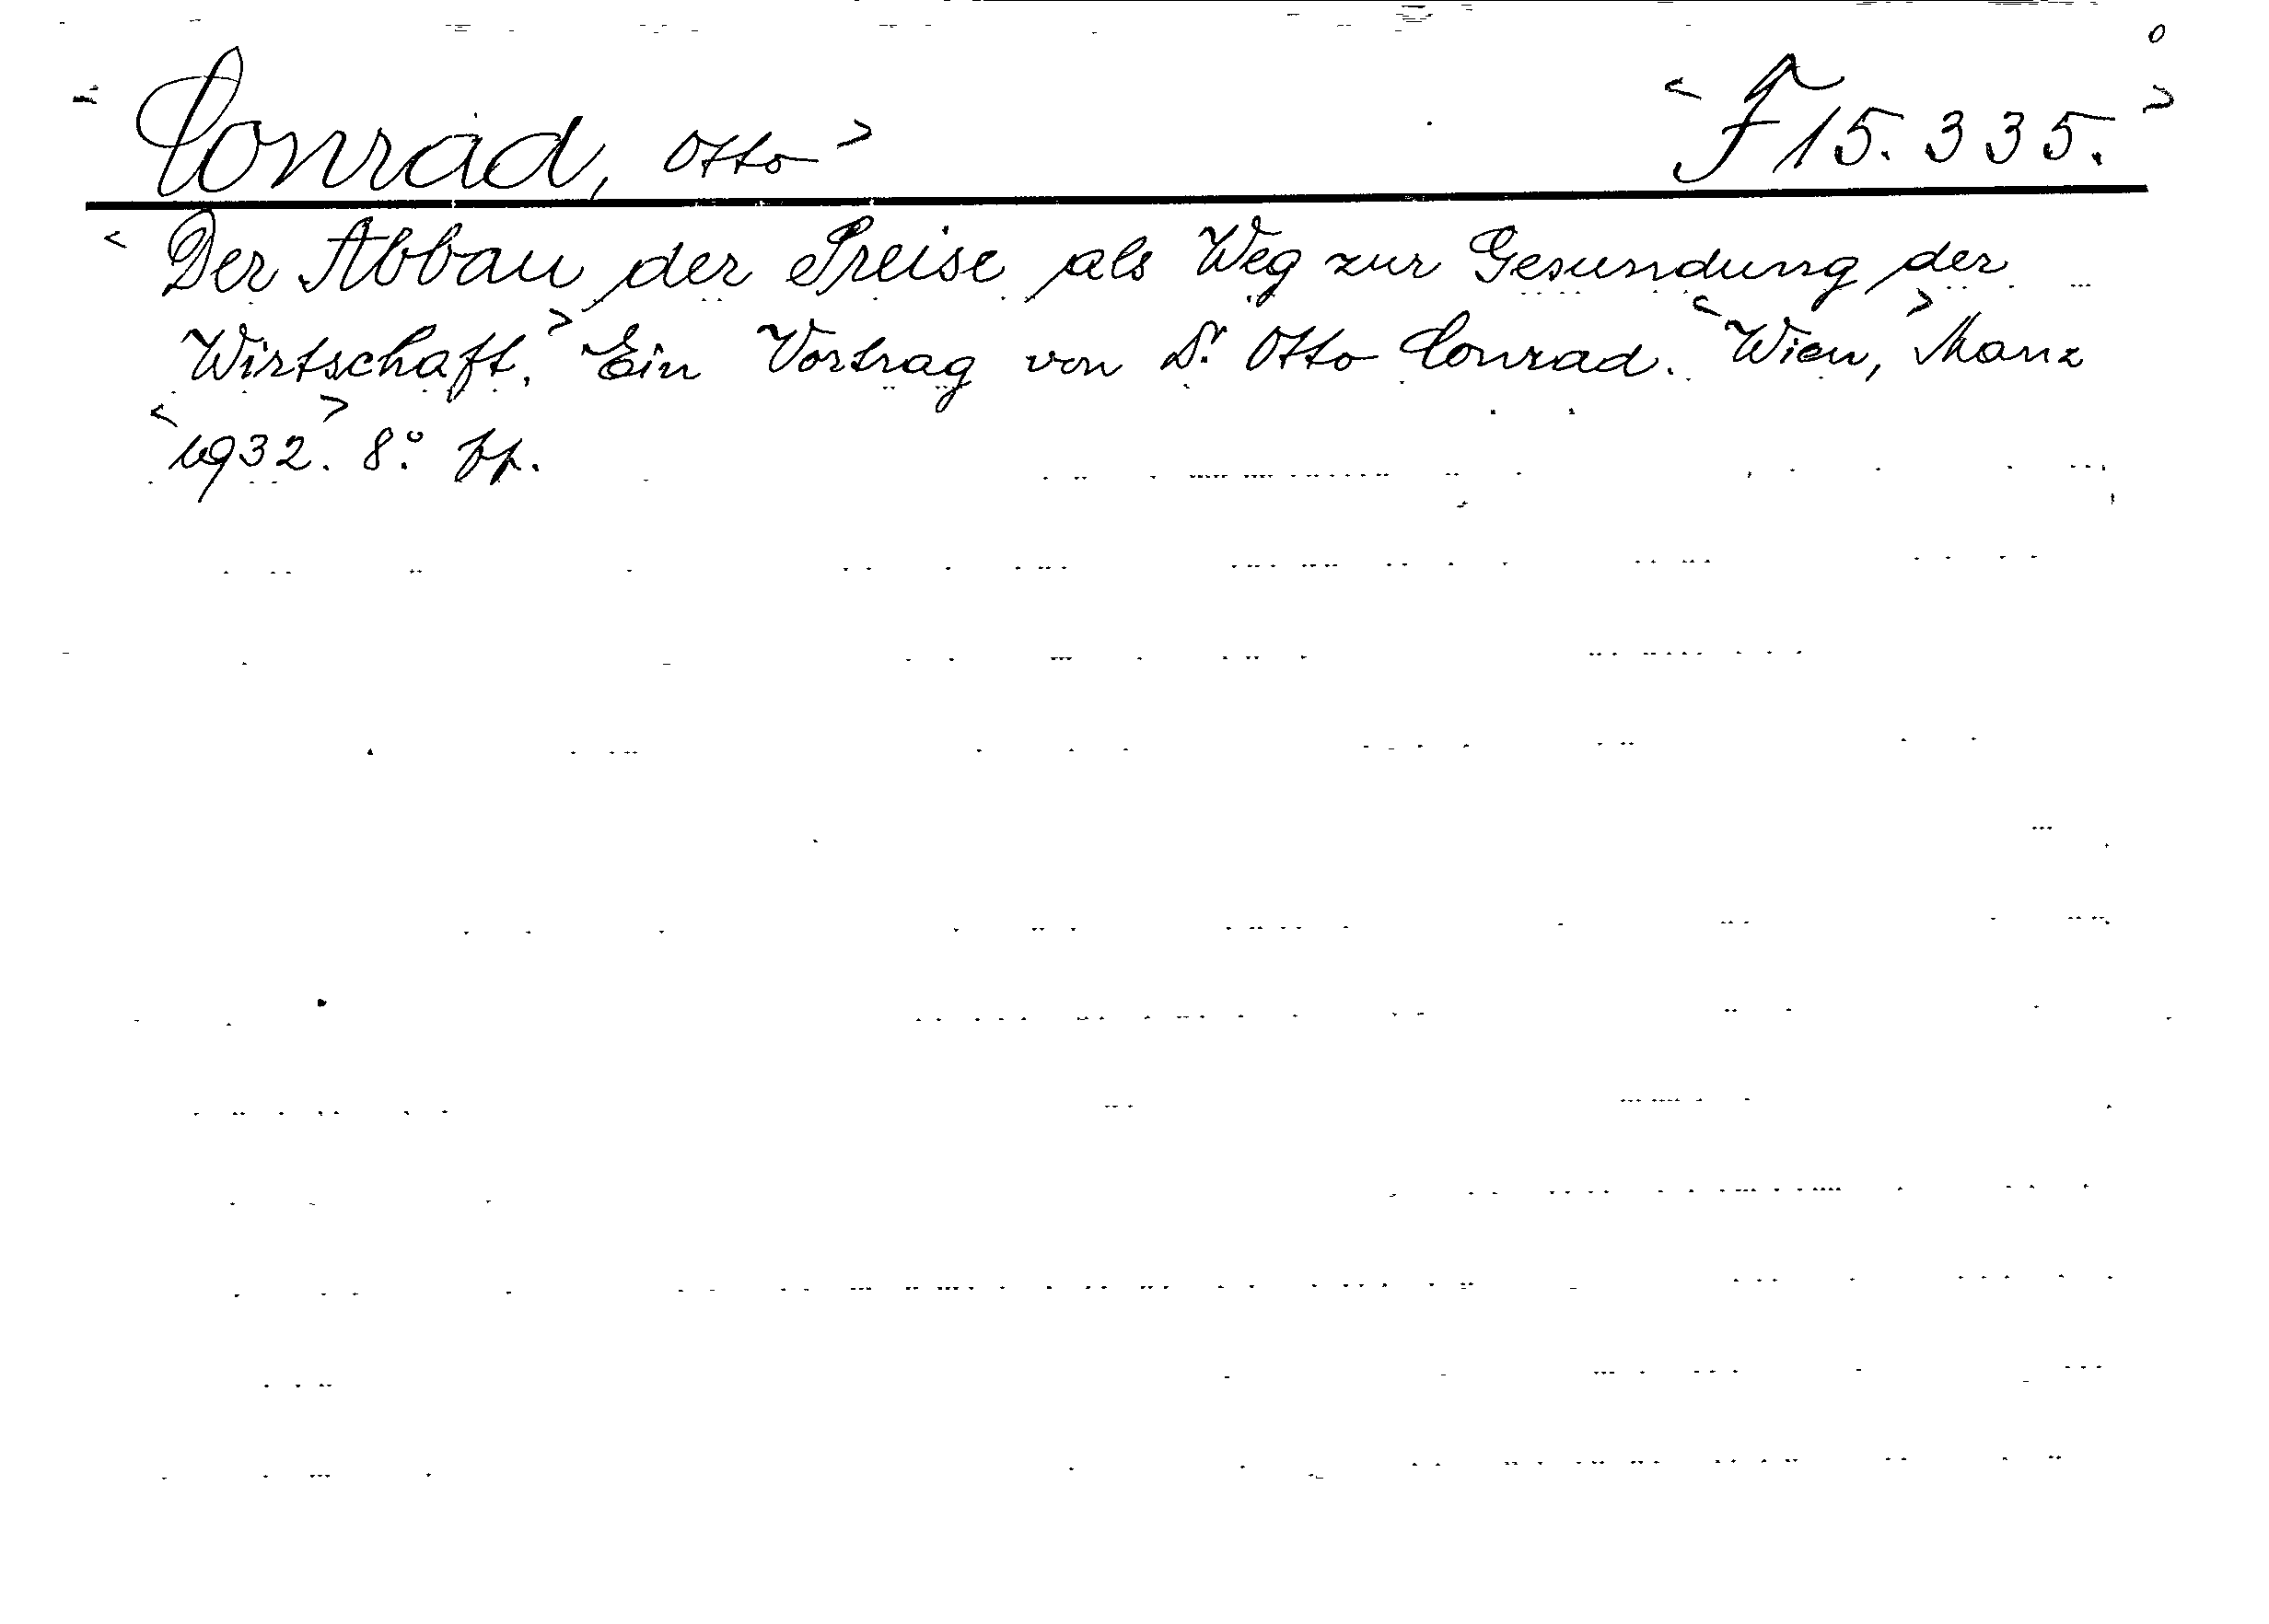 <Conrad, Otto> <F 15.335.>
<Der Abbau der Preise als Weg zur Gesundung der
Wirtschaft.> Ein Vortrag von Dr. Otto Conrad. <Wien,> Manz
<1932>. 8.°